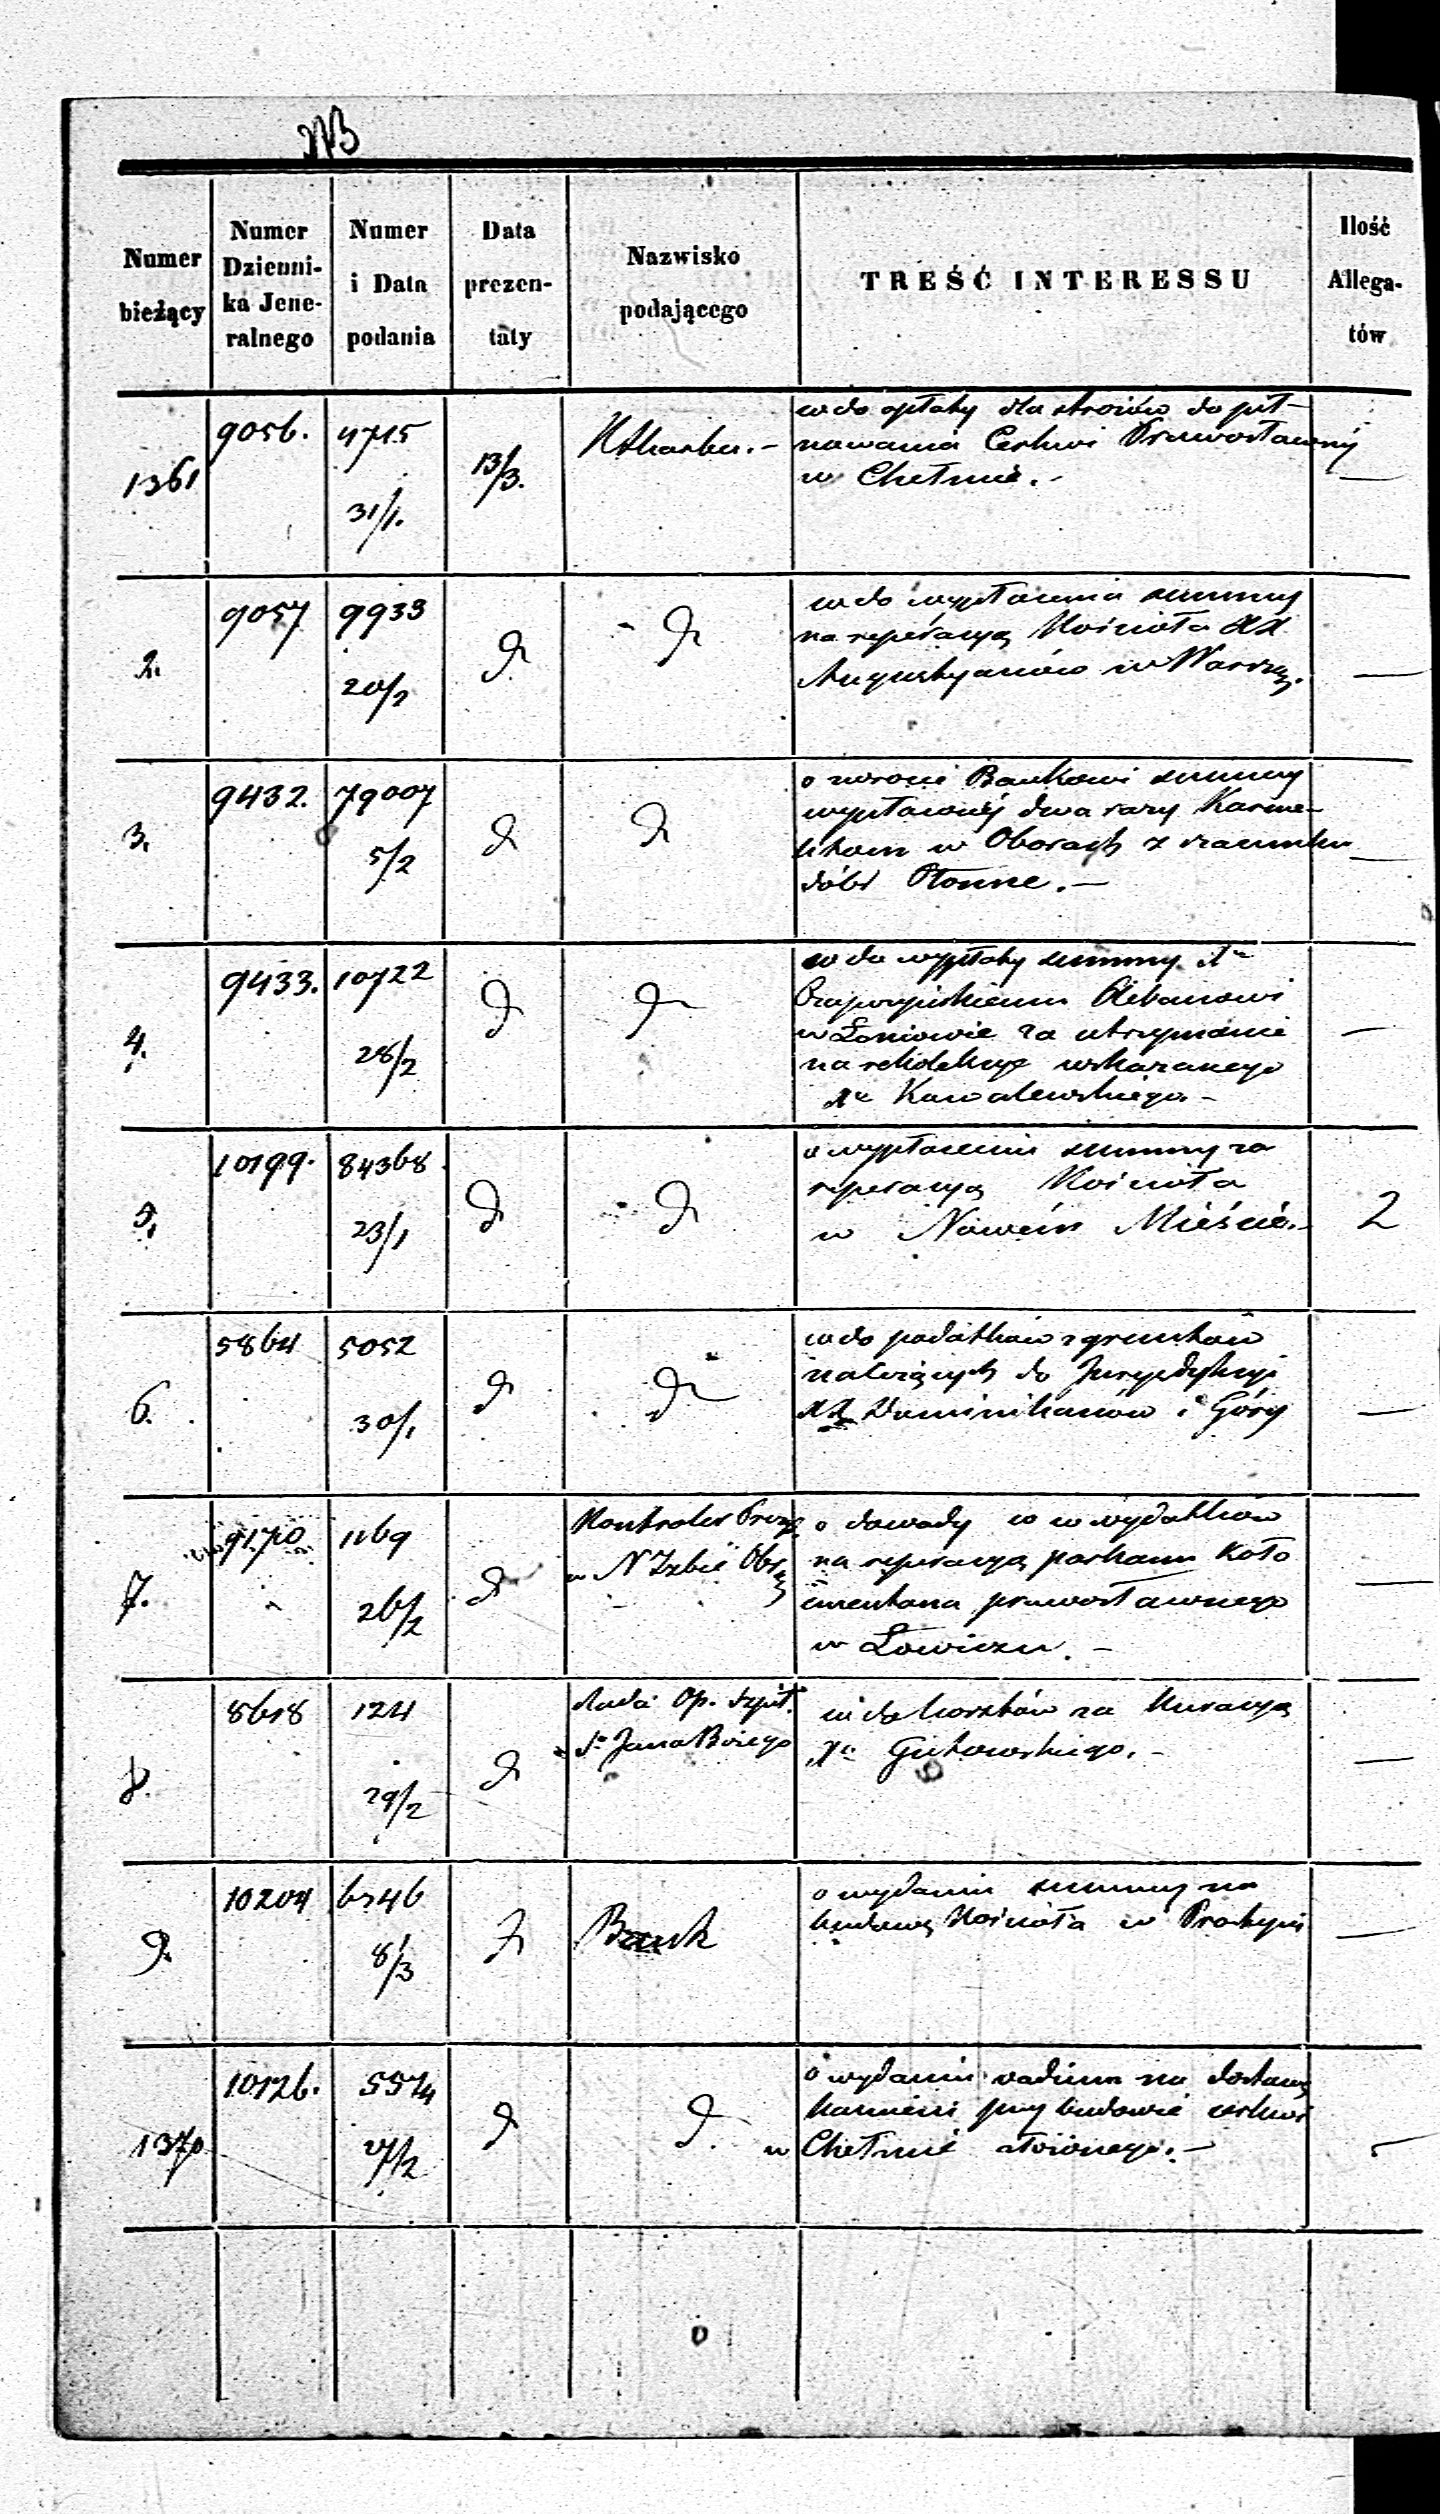 Numer bieżący
Numer Dzienni-
ka Jene-
ralnego
Numer i Data podania
Data prezen-
taty
Nazwisko podającego
TREŚĆ INTERESSU
Ilość Allega-
tów
1361
9056.
4715
31/1.
13/3.
KSkarbu.-
wdo opłaty dla stroiów do pil-
nowania Cerkwi Prawosławnéj
w Chełmie.-
—
2.
9057
9933
20/2
d
d
wdo wypłacenia summy
na reperacyą Kościoła XX
Augustyanów w Warsz.
—
3.
9432.
79007
5/2
d
d
o zwrocie Bankowi summy
wypłaconéj dwa razy Karme-
litom w Oborach z szacunku
dóbr Płonne.—
—
4.
9433.
10722
28/2
d
d
wdo wypłaty summy X
Plebanowi
w Łoniowie za utrzymanie
na rekolekcye wskazanego
Xa Kowalewskiego.-
—
5.
10199.
84368.
23/1
d
d
o wypłacenie summy za
reperacyą Kościoła
w Nowém Mieście.-
2
6.
5864
5052
30/1
d
d
wdo podatków z gruntów
należących do Jurysdykcyi
XX Dominikanów i Góry
—
7.
9170
1169
26/2
d
Kontroler Prez.
w N Izbie Obr.
o dowody co w wydatków
na reperacyą parkanu koło
cmentarza prawosławnego
w Łowiczu.-
—
8.
8618
124
29/2
d
Rada Op. Szpit.
S. Jana Bożego
wdo kosztów za kuracyą
Xa Gutowskiego.-
—
9.
10204
6746
8/3
d
Bank
o wydanie summy na
budowę Kościoła w Prostyni
—
1370
10126.
5574
27/2
d
d
o wydanie vadium na dostawę
kamieni przy budowie cerkwi
w Chełmie złożonego.-
-